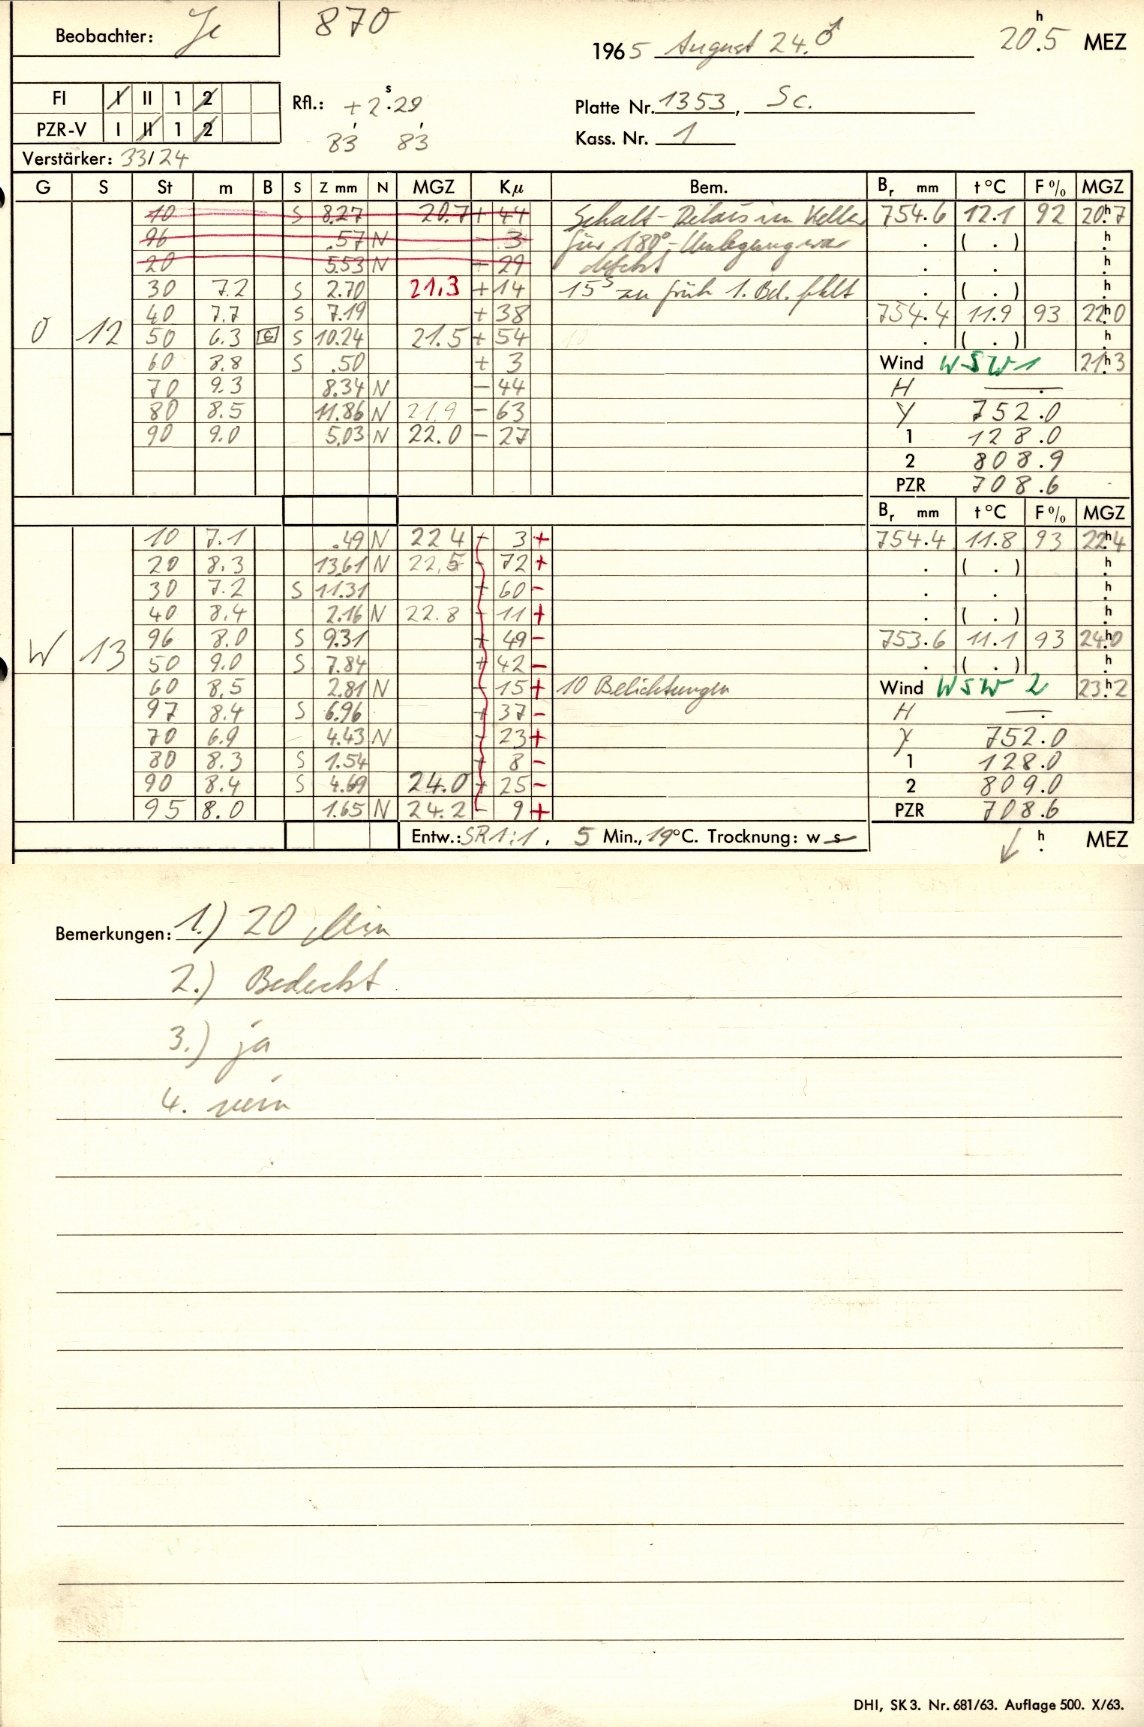 Beobachter: Je 870 1965 August 24. ♂ 20.5 h MEZ
FI I II 1 2 Rfl.: +2.29 s Platte Nr. 1353, Sc.
PZR-V I II 1 2 83 83 Kass. Nr. 1
Verstärker: 33/24
G S St m B S Z mm N MGZ Kμ Bem. Br mm t°C F% MGZ
10 S 8.27 20.7 + 44 Schalt-Relais im Keller 754.6 12.1 92 20h7
96 .57 N 3 für 180°-Umlegung war . ( . ) h
20 5.53 N - 29 defekt . . h
30 7.2 S 2.70 21.3 + 14 15s zu früh 1. Bel. fehlt . ( . ) h
40 7.7 S 7.19 + 38 754.4 11.9 93 22h0
O 12 50 6.3 G S 10.24 21.5 + 54 . ( . ) h
60 8.8 S .50 + 3 Wind WSW 1 21h3
70 9.3 8.34 N - 44 H .
80 8.5 11.86 N 21.9 - 63 Y 752.0
90 9.0 5.03 N 22.0 - 27 1 128.0
2 808.9
PZR 708.6
Br mm t°C F% MGZ
10 7.1 .49 N 22.4 3 + 754.4 11.8 93 22h4
20 8.3 13.61 N 22.5 72 + . ( . ) h
30 7.2 S 11.31 60 - . . h
40 8.4 2.16 N 22.8 11 + . ( . ) h
W 13 96 8.0 S 9.31 49 - 753.6 11.1 93 24h0
50 9.0 S 7.84 + 42 - . ( . ) h
60 8.5 2.81 N 15 + 10 Belichtungen Wind WSW 2 23h2
97 8.4 S 6.96 37 - H .
70 6.9 4.43 N 23 + Y 752.0
80 8.3 S 1.54 8 - 1 128.0
90 8.4 S 4.69 24.0 25 - 2 809.0
95 8.0 1.65 N 24.2 - 9 + PZR 708.6
Entw.: SR1:1, 5 Min., 19°C. Trocknung: w s h MEZ
Bemerkungen: 1.) 20 Min
2.) Bedeckt
3.) ja
4. nein
DHI, SK 3. Nr. 681/63. Auflage 500. X/63.